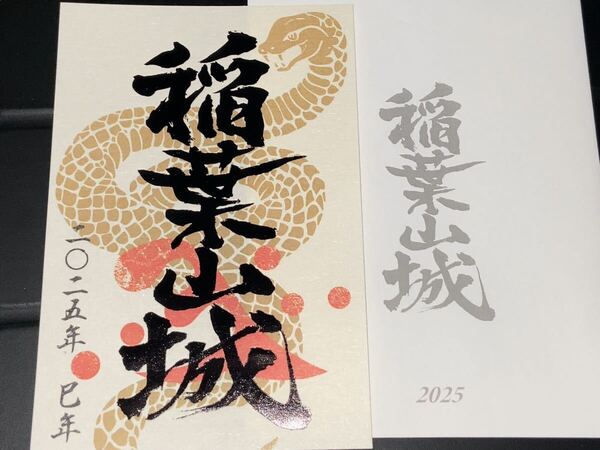 稲葉山城
二〇二五年 巳年
稲葉山城
2025